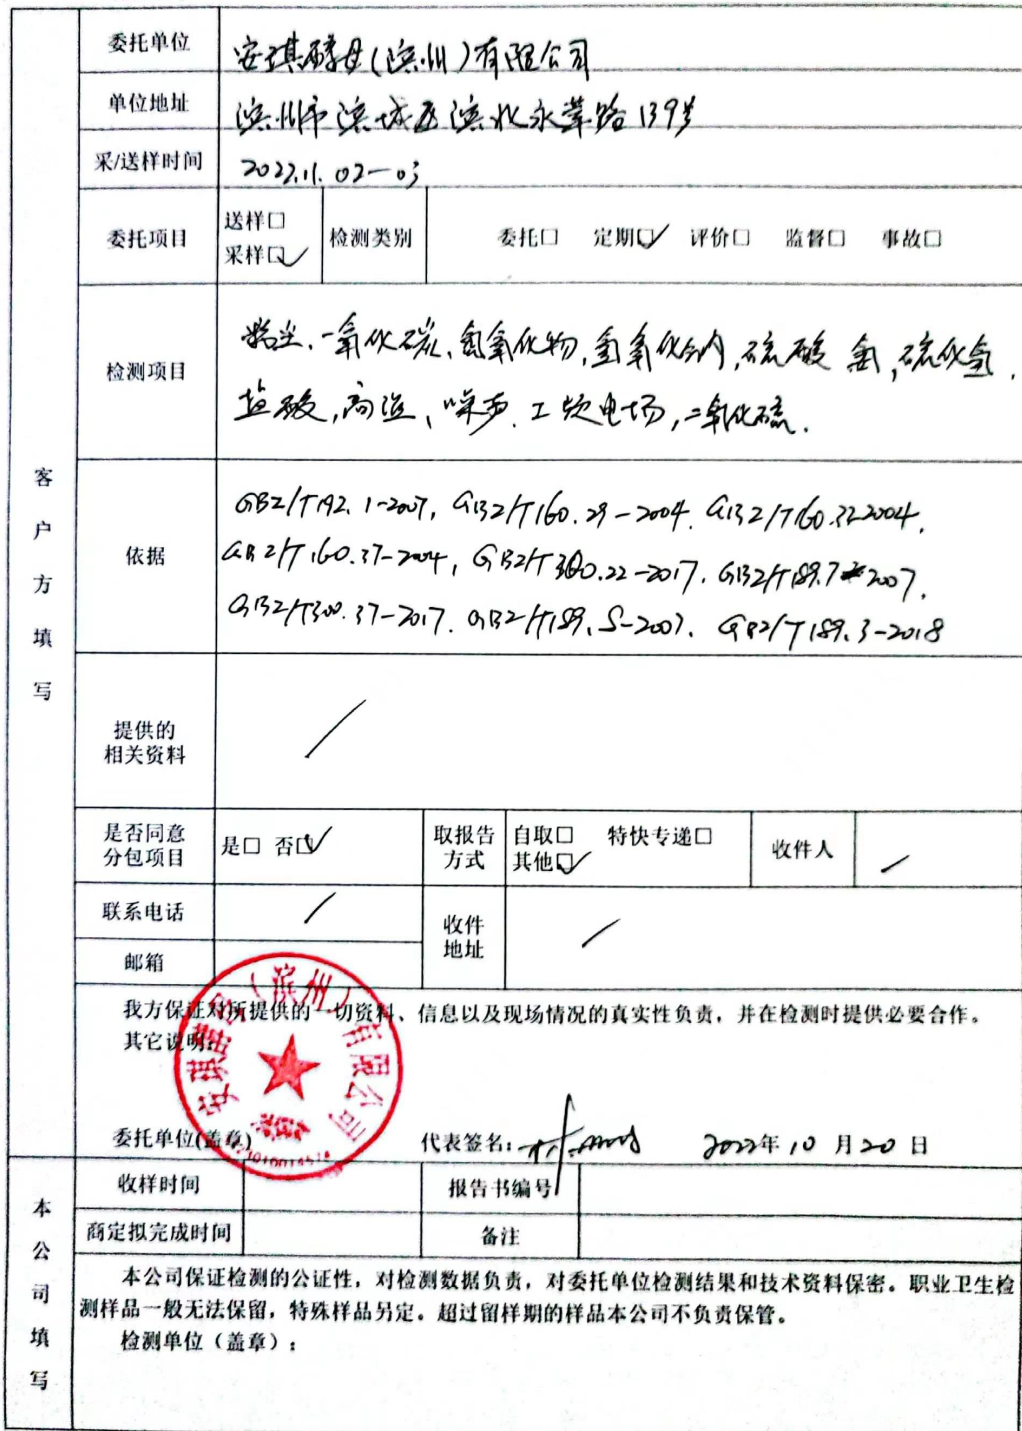 委托单位 安琪酵母(滨州)有限公司
单位地址 滨州市滨城区滨北永莘路139号
采/送样时间 2022.11.02-03
委托项目 送样□ 采样□✓ 检测类别 委托□ 定期□✓ 评价□ 监督□ 事故□
检测项目 粉尘、一氧化碳、氮氧化物,氢氧化钠,硫酸 氨,硫化氢、
盐酸,高温、噪声、工频电场,二氧化硫.
客户方填写
依据 GBZ/T192.1-2007, GBZ/T160.29-2004. GBZ/T160.33-2004.
GBZ/T160.37-2004, GBZ/T300.22-2017. GBZ/T189.7-2007.
GBZ/T300.37-2017. GBZ/T189.5-2007. GBZ/T189.3-2018
提供的
相关资料 /
是否同意
分包项目 是□ 否□✓ 取报告
方式 自取□ 特快专递□
其他□✓ 收件人 /
联系电话 / 收件
地址 /
邮箱
我方保证对所提供的一切资料、信息以及现场情况的真实性负责,并在检测时提供必要合作。
其它说明:
安琪酵母(滨州)有限公司
委托单位(盖章) 代表签名: 2022年10月20日
本公司填写
收样时间 报告书编号
商定拟完成时间 备注
本公司保证检测的公证性,对检测数据负责,对委托单位检测结果和技术资料保密。职业卫生检
测样品一般无法保留,特殊样品另定。超过留样期的样品本公司不负责保管。
检测单位(盖章):